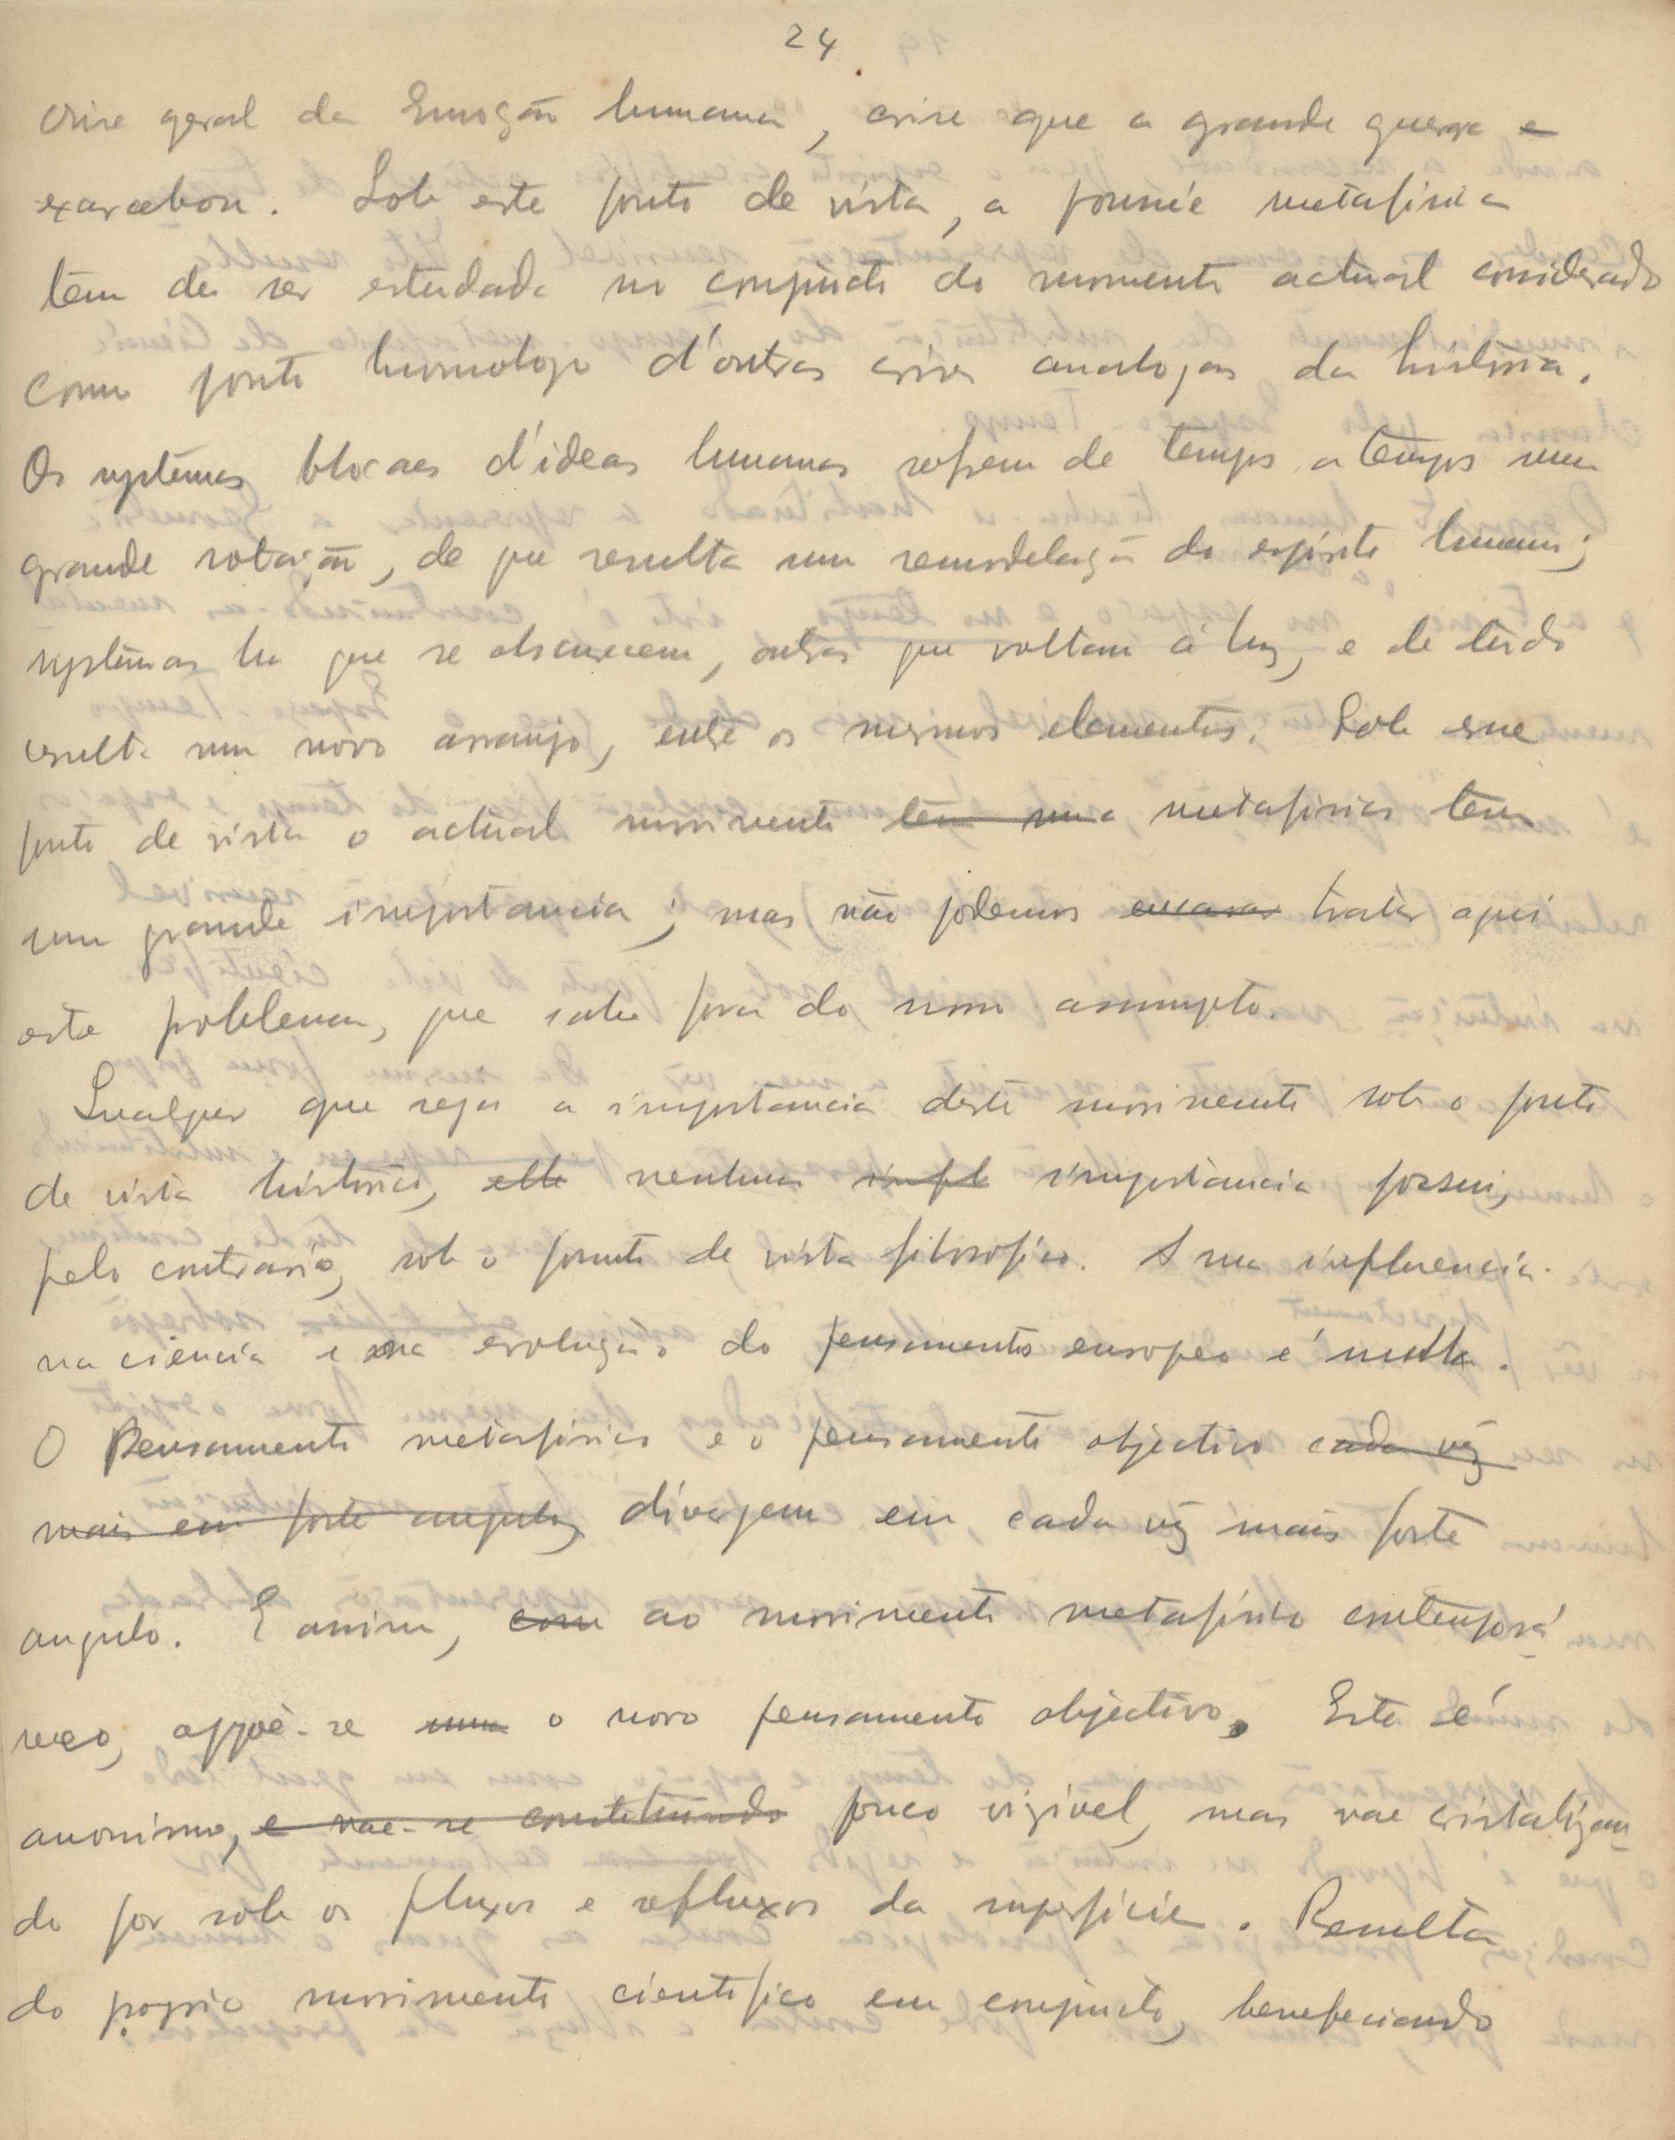 24
crise geral da Emoção humana, crise que a grande guerra e
exarcebou. Sob este ponto de vista, a poussée metafisica
tem de ser estudada no conjuncto do momento actual considerado
como ponto homologo d'outras crises analogas da historia.
Os systemas blocaes d'ideas humanas sofrem de tempos a tempos uma
grande rotação, de que resulta uma remodelação do espirito humano;
systemas ha que se obscurecem, outros que voltam á luz, e de tudo
resulta um novo arranjo, entre os mesmos elementos. Sob esse
ponto de vista o actual movimento tem uma metafisico tem
uma grande importancia; mas não podemos encarar tratar aqui
este problema, que sahe fora do nosso assumpto.
Qualquer que seja a importancia deste movimento sob o ponto
de vista historico, elle nenhuma importancia possui,
pelo contrario, sob o ponto de vista filosofico. A sua influencia
na ciencia e na evolução do pensamento europeo é nulla.
O Pensamento metafisico e o pensamento objectivo cada vez
mais em forte angulo, divergem em cada vez mais forte
angulo. E assim, com ao movimento metafisico contempora-
neo, oppoê-se uma o novo pensamento objectivo. Este é
anonimo, e vae-se constituindo pouco vizivel, mas vae cristalizan-
do por sob os fluxos e refluxos da superficie. Resulta
do proprio movimento cientifico em conjuncto, beneficiando